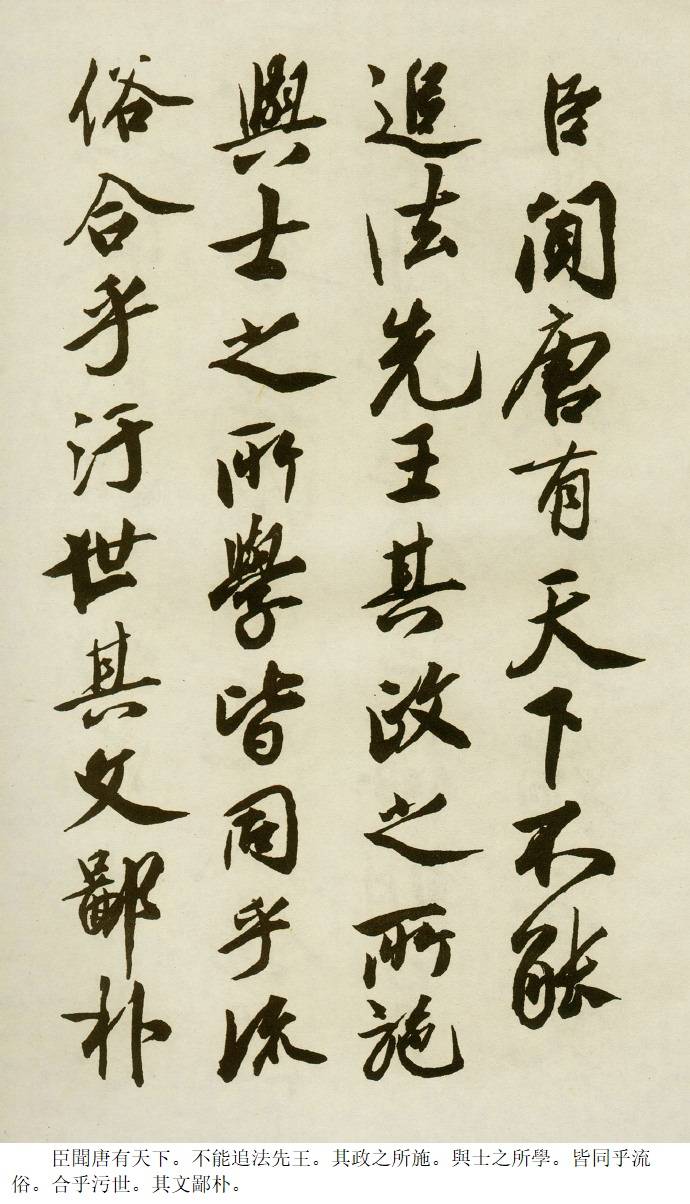 臣聞唐有天下不能
追法先王其政之所施
與士之所學皆同乎流
俗合乎汙世其文鄙朴
臣聞唐有天下。不能追法先王。其政之所施。與士之所學。皆同乎流
俗。合乎污世。其文鄙朴。